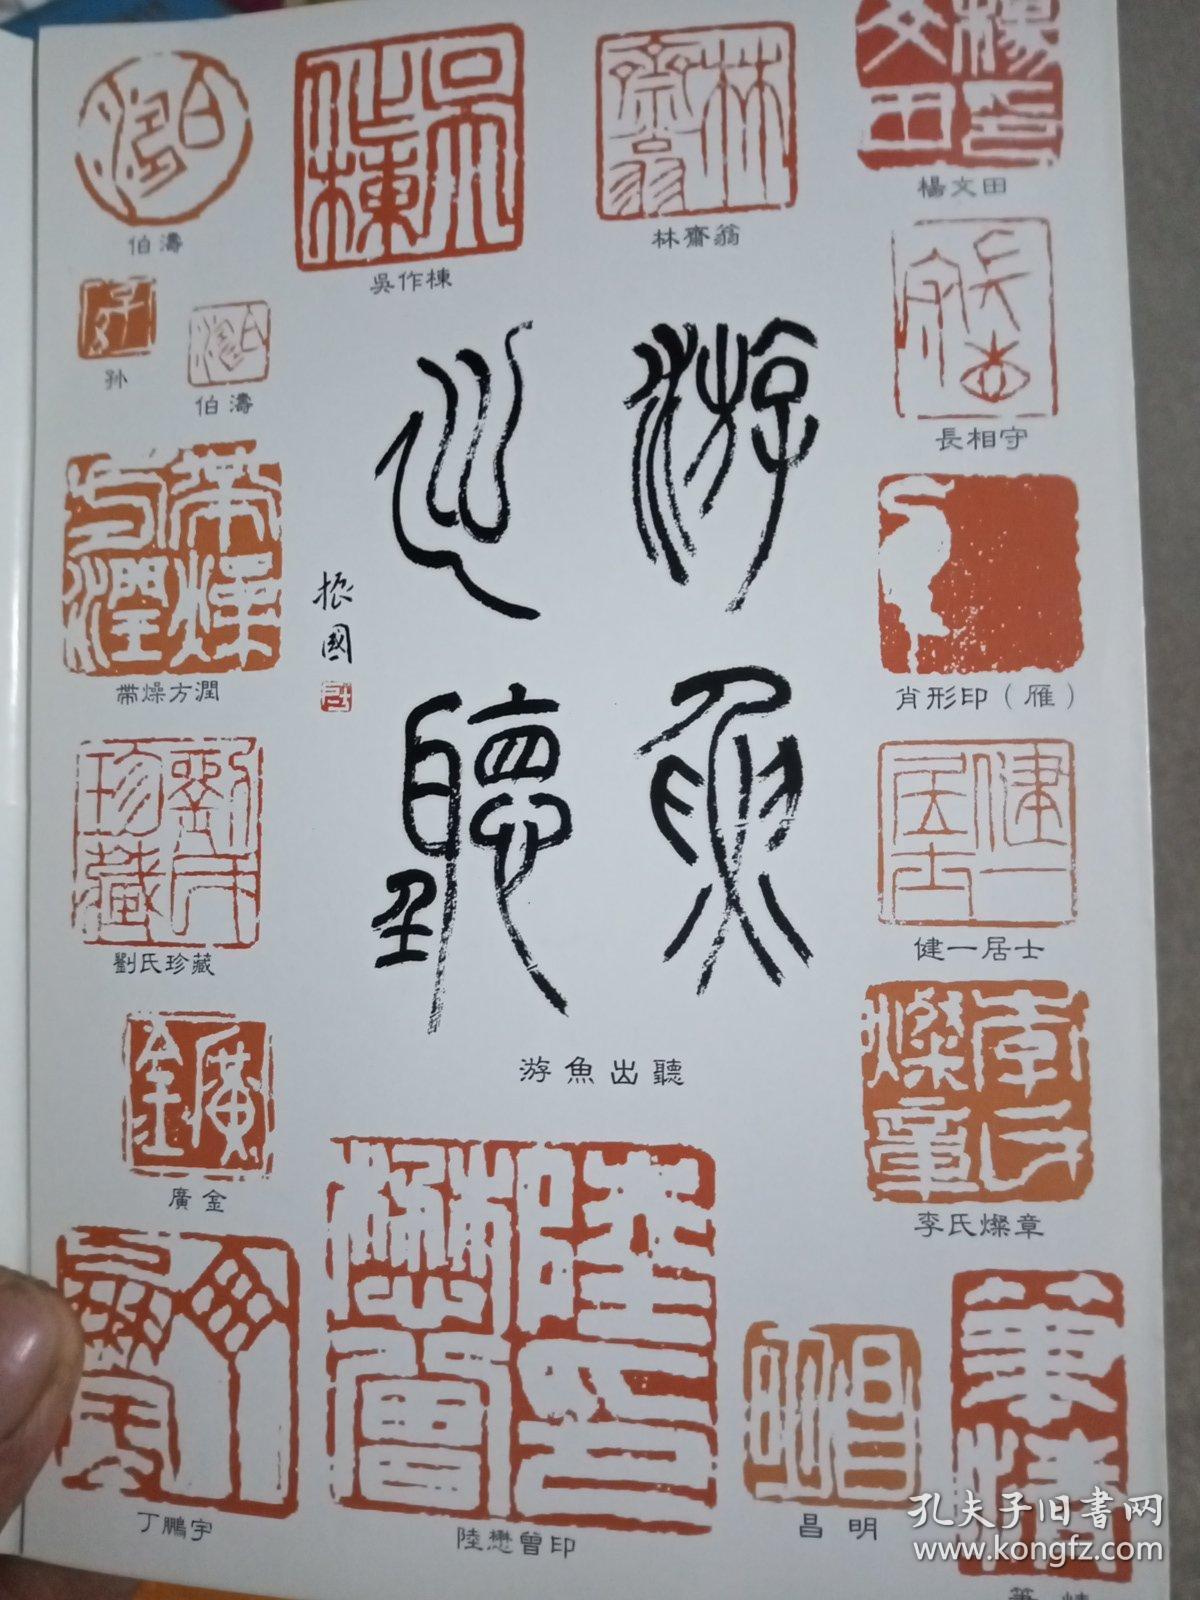 伯濤
吳作棟
林齋翁
楊文田
孙
伯濤
長相守
游魚出聽
振國
帶燥方潤
肖形印（雁）
劉氏珍藏
健一居士
游魚出聽
廣金
李氏燦章
丁鵬宇
陸懋曾印
昌明
孔夫子旧书网
www.kongfz.com